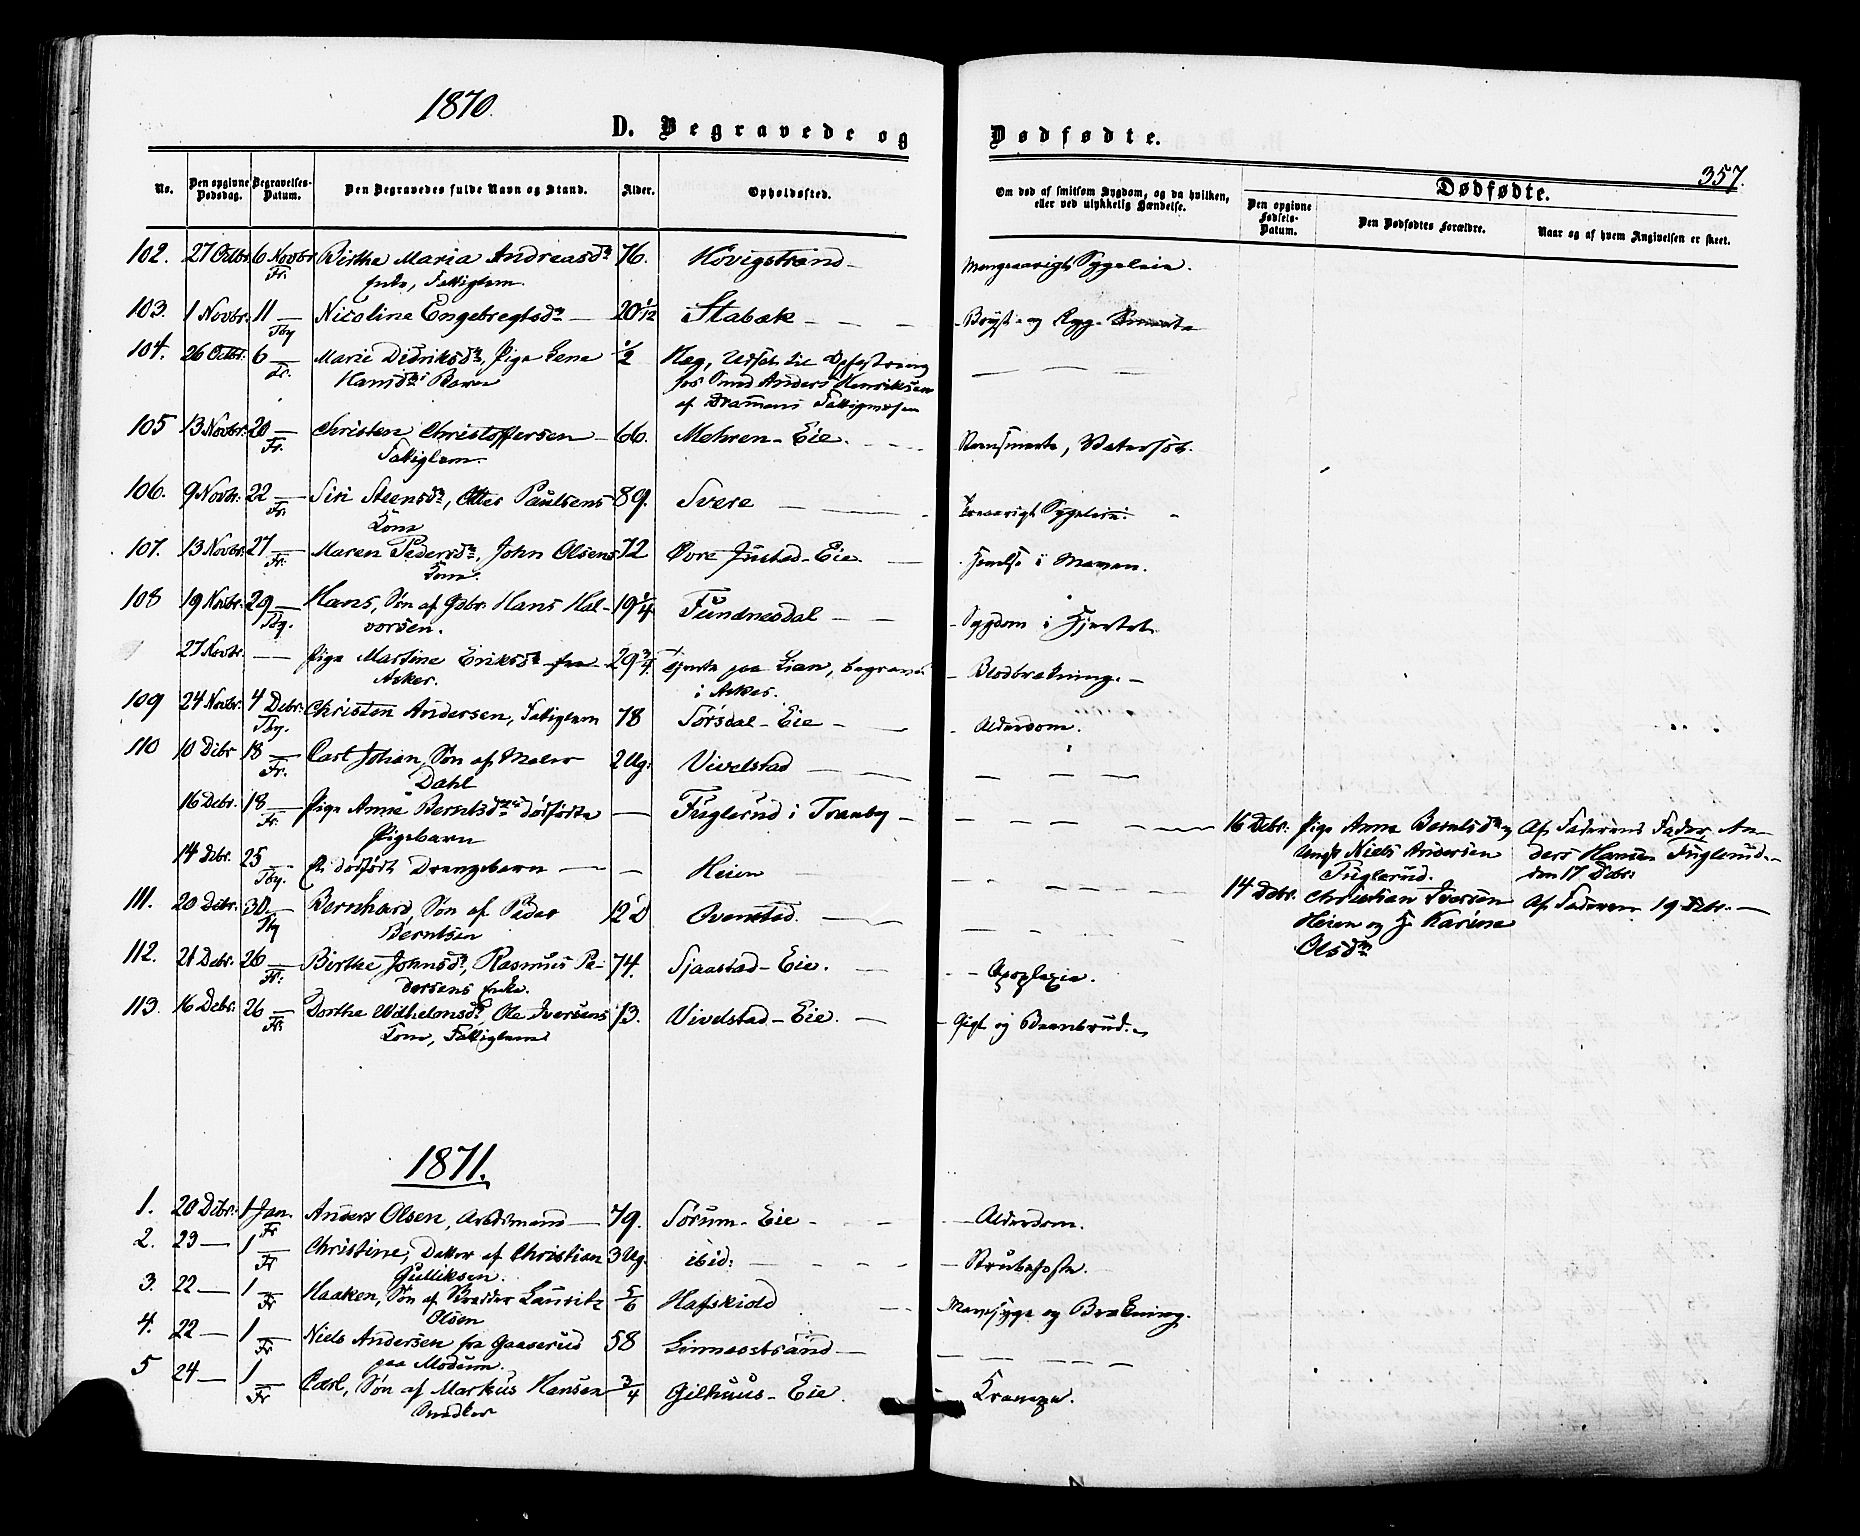 1870.
D. Begravede og Dødfødte.
357.
No. Den opgivne Dødsdag. Begravelses-Datum. Den Begravedes fulde Navn og Stand. Alder. Opholdssted.
Om død af smitsom Sygdom, og da hvilken, eller ved ulykkelig Hændelse.
Dødfødte.
Den opgivne Fødsels-Datum. Den Dødfødtes Forældre. Naar og af hvem Angivelsen er skeet.
102. 27 Octbr. 6 Novbr Birthe Maria Andreasdr 76. Kovigstrand Mangeaarigt Sygeleie.
Fr. Enke, Fattiglem.
103. 1 Novbr. 11 — Nicoline Engebregtsdr — 20 1/12 Stabæk — Bryst- og Ryg-Smerte
Tby
104. 26 Octbr. 6 — Marie Didriksdr, Pige Lene 1/2 Hæg, udsat til Opfostring
Fr. Hansdrs Barn for Smed Anders Henriksen
af Drammens Fattigvæsen
105 13 Novbr. 20 — Christen Christoffersen — 66. Mehren-Eie. Vatersot.
Fr. Fattiglem.
106. 9 Novbr. 22 — Siri Steensdr, Otter Paulsens 89. Svere — Sygeleie.
Fr. Kone
107. 13 Novbr. 27 — Maren Pedersdr, John Olsens 72 Øvre Justad-Eie. i Maven.
Fr. Kone.
108 19 Novbr. 29 — Hans, Søn af Gbr. Hans Hal- 19 1/4 Fundnesdal — Sygdom i Hjertet.
Tby. vorsen.
27 Novbr. — Pige Martine Eriksdr fra 29 3/4 tjente paa Lian, begravet Blodbrækning.
Asker. i Asker.
109 24 Novbr. 4 Debr. Christen Andersen, Fattiglem 78 Sørsdal-Eie — Alderdom.
Tby.
110 10 Debr 18 — Carl Johan, Søn af Maler 2 Ug. Vivelstad —
Fr. Dahl
16 Debr. 18 — Pige Anne Berntsdrs dødfødte — Fuglerud i Tranby — 16 Debr. Pige Anne Berntsdr og Af Faderens Fader, An-
Fr. Pigebarn Ungk Niels Andersen ders Hansen Fuglerud
Fuglerud. den 17 Debr.
14 Debr. 25 — Et dødfødt Drengebarn — Heien 14 Debr. Christian Iversen Af Faderen 19 Debr. —
Tby. Heien og H. Karine
Olsdr
111. 20 Debr. 30 — Bernhard, Søn af Peder 12 D Ovenstad. —
Tby Berntsen
112. 21 Debr. 26 — Birthe Johnsdr, Rasmus Pe- 74. Sjaastad-Eie. — Apoplexie.
Fr. dersens Enke.
113. 16 Debr. 26 — Dorthe Wilhelmsdr, Ole Iversens 73. Vivelstad-Eie. — Gigt og Beenbrud.
Fr. Kone, Fattiglem
1871.
1. 20 Debr. 1 Jan. Anders Olsen, Arbdsmand — 79. Sørum-Eie — Alderdom.
Fr
2. 23 — 1 — Christine, Datter af Christian 3 Ug. ibid: — Strubehoste.
Fr Gulliksen.
3. 22 — 1 — Haaken, Søn af Snedker Lauritz 5/6 Hafskiold Mavesyge og Brækning.
Fr Olsen
4. 22 — 1 — Niels Andersen fra Gaaserud 58 Linnesstrand —
Fr paa Modum.
5 24 — 1 — Carl, Søn af Markus Hansen 3/4 Gilhuus-Eie. Krampe.
Fr Snedker